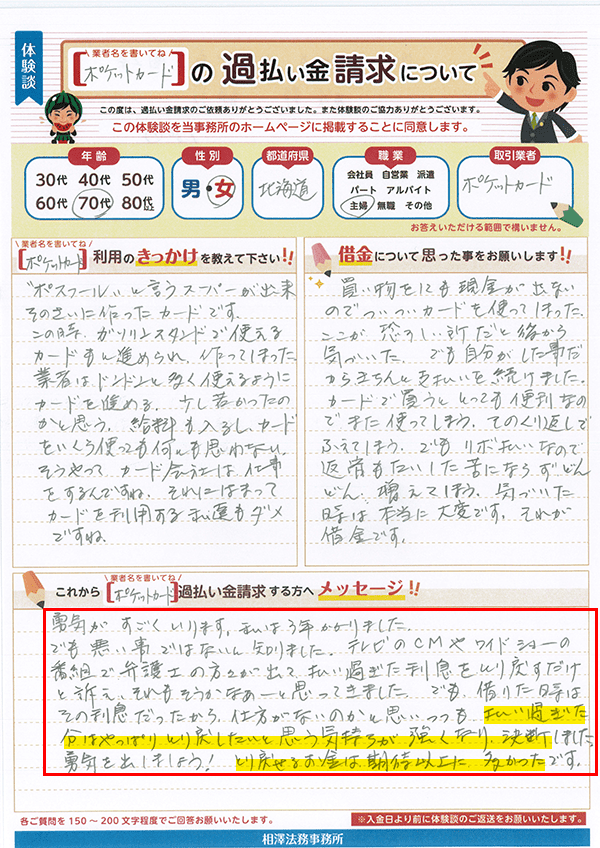 体験談
\業者名を書いてね/
[ポケットカード]の過払い金請求について
この度は、過払い金請求のご依頼ありがとうございました。また体験談のご協力ありがとうございます。
この体験談を当事務所のホームページに掲載することに同意します。
年齢
30代 40代 50代
60代 70代 80代以上
性別
男・女
都道府県
北海道
職業
会社員 自営業 派遣
パート アルバイト
主婦 無職 その他
取引業者
ポケットカード
お答えいただける範囲で構いません。
\業者名を書いてね/
[ポケットカード]利用のきっかけを教えて下さい!!
"ポスフール"と言うスーパーが出来
そのさいに作ったカードです。
この時、ガソリンスタンドで使える
カードもに進められ、作ってしまった
業者はドンドンと多く使えるように
カードを進める。少し若かったの
かと思う。給料も入るし、カード
をいくら使っても何とも思わない。
そうやって カード会社は仕事
をするんですね。それにはまって
カードを利用する私達もダメ
ですね。
借金について思った事をお願いします!!
買い物をにも現金が出ない
のでついついカードを使ってしまった。
ここが恐ろしい所だと後から
気づいた。でも自分がした事だ
からきちんと支払いを続けました。
カードで買うととっても便利なの
でまた使ってしまう、そのくり返しで
ふえてしまう。でもリボ払いなので
返済もたいした苦にならずどん
どん増えてしまう。気づいた
時は本当に大変です。それが
借金です。
これから[ポケットカード]過払い金請求する方へメッセージ!!
\業者名を書いてね/
勇気が すごくいります。私は3年かかりました。
でも悪い事ではないと知りました。テレビのCMやワイドショーの
番組で弁護士の方々が出て、払い過ぎた利息をとり戻すだけ
と訴え、それもそうかなあーと思ってきました。でも、借りた時は
その利息だったから、仕方がないのかと思いつつも、払い過ぎた
分はやっぱりとり戻したいと思う気持ちが強くなり、決断しました
勇気を出しましょう! とり戻せるお金は期待以上に多かったです。
各ご質問を150～200文字程度でご回答お願いいたします。
※入金日より前に体験談のご返送をお願いいたします。
相澤法務事務所